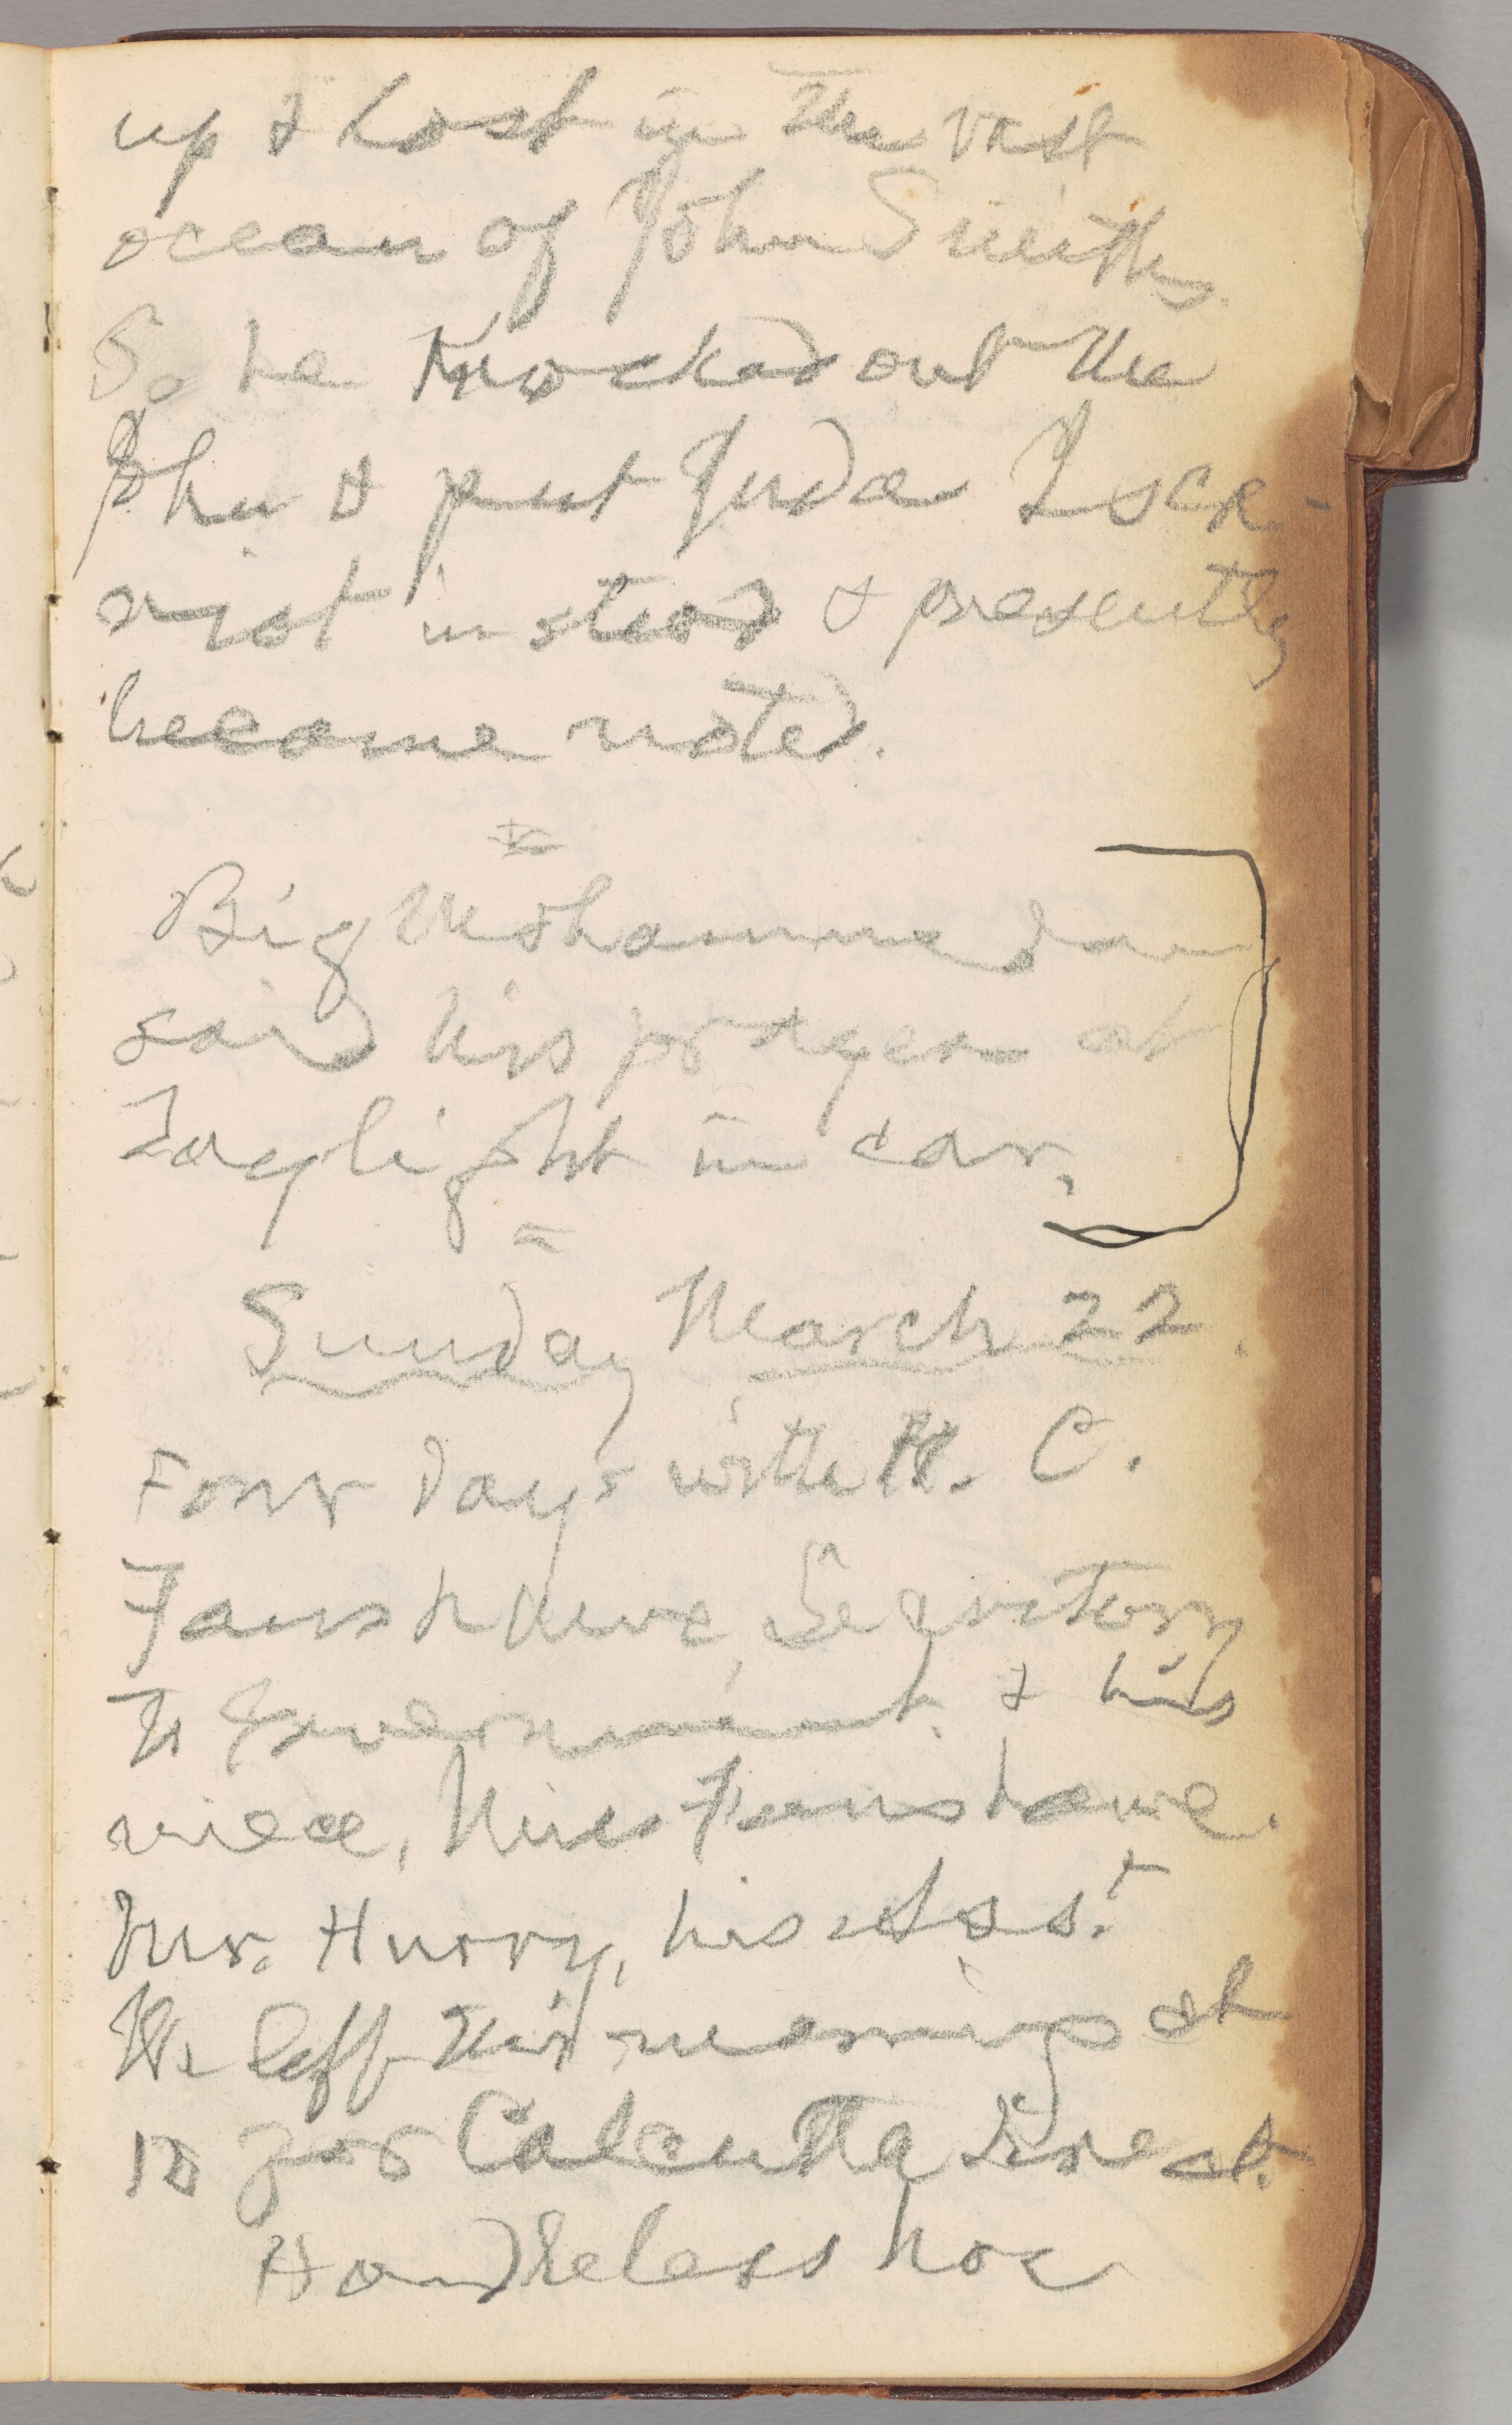 up & lost in the vast
ocean of John Smiths.
So he knocked out the
John & put Judas Iscar-
riot instead & presently
became noted.
Big Mohammedan
said his prayers at
daylight in car.
Sunday March 22.
Four days with H. C.
Fanshawe, Secretary
to Government, & his
niece, Miss Fanshawe.
Mr. Hurry, his Asst.
We left this morning at
10 for Calcutta direct.
Handleless hoe